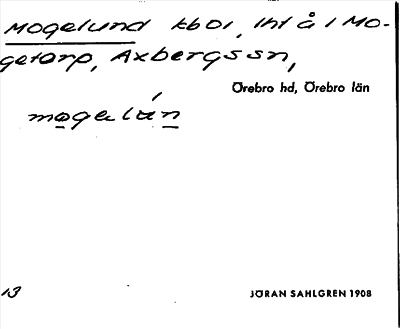 Mogelund tbol, lht å i Mo-
getorp, Axbergssn,
Örebro hd, Örebro län
mogelún
13
JÖRAN SAHLGREN 1908